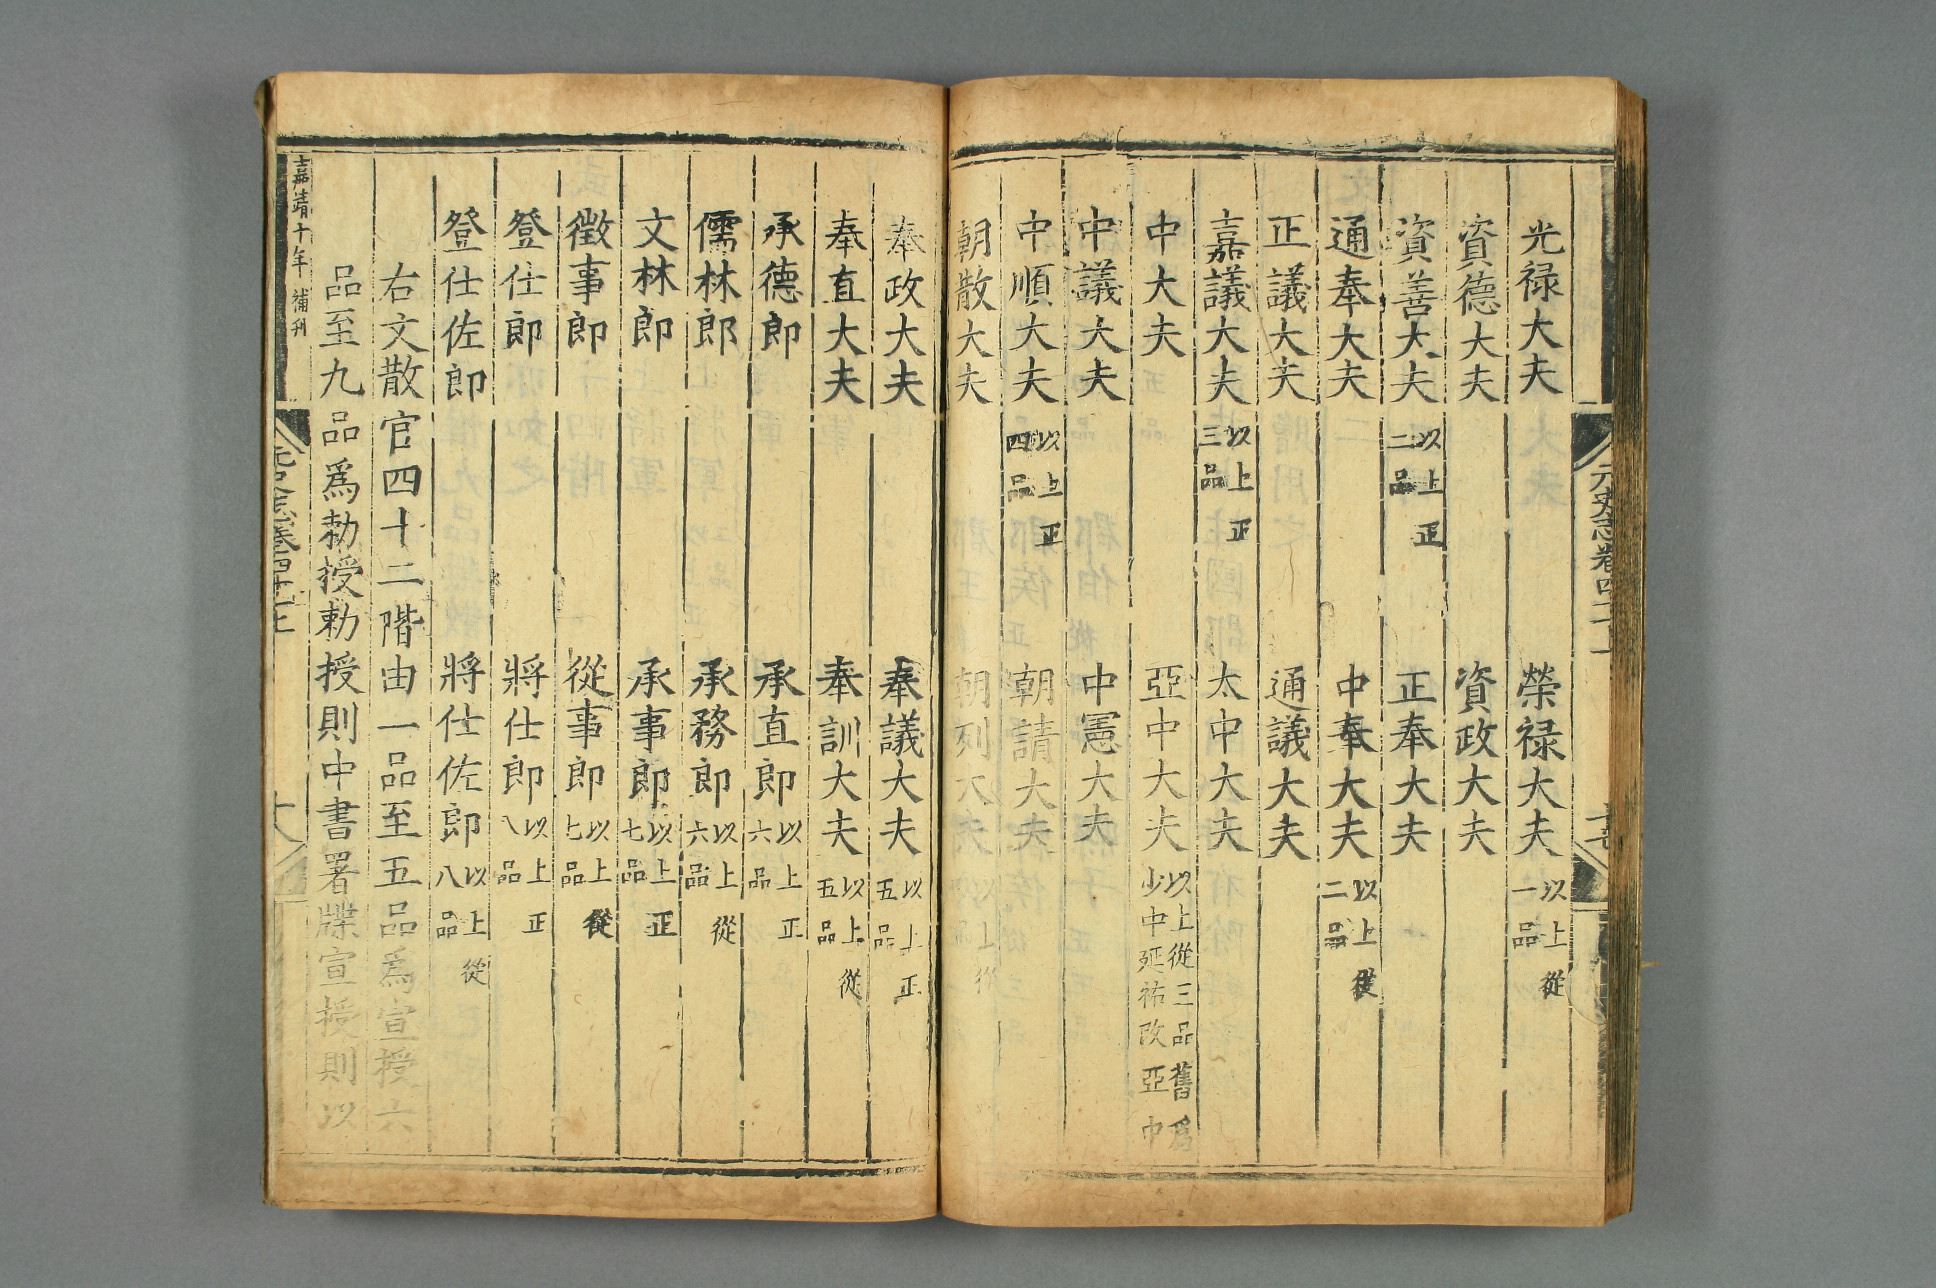 光禄大夫 榮禄大夫 以上從一品
資德大夫 資政大夫
資善大夫 以上正二品 正奉大夫
通奉大夫 中奉大夫 以上從二品
正議大夫 通議大夫
嘉議大夫 以上正三品 太中大夫
中大夫 亞中大夫 以上從三品舊爲少中延祐改亞中
中議大夫 中憲大夫
中順大夫 以上正四品 朝請大夫
朝散大夫 朝列大夫 以上從
奉政大夫 奉議大夫 以上正五品
奉直大夫 奉訓大夫 以上從五品
承德郎 承直郎 以上正六品
儒林郎 承務郎 以上從六品
文林郎 承事郎 以上正七品
徵事郎 從事郎 以上從七品
登仕郎 將仕郎 以上正八品
登仕佐郎 將仕佐郎 以上從八品
右文散官四十二階由一品至五品爲宣授六
品至九品爲勑授勑授則中書署牒宣授則以
嘉靖十年補刊
元史志卷四十七